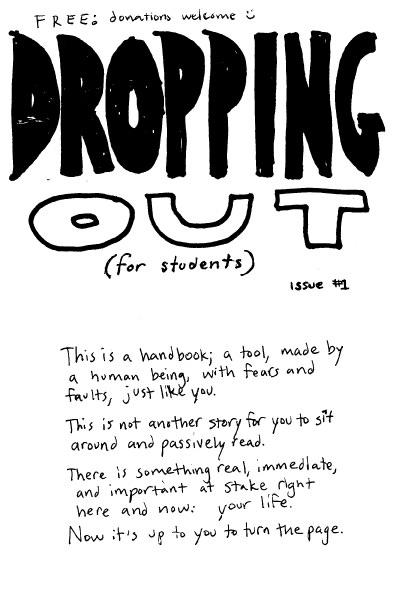 FREE: donations welcome :)
DROPPING
OUT
(for students)
issue #1
This is a handbook; a tool, made by
a human being, with fears and
faults, just like you.
This is not another story for you to sit
around and passively read.
There is something real, immediate,
and important at stake right
here and now: your life.
Now it's up to you to turn the page.